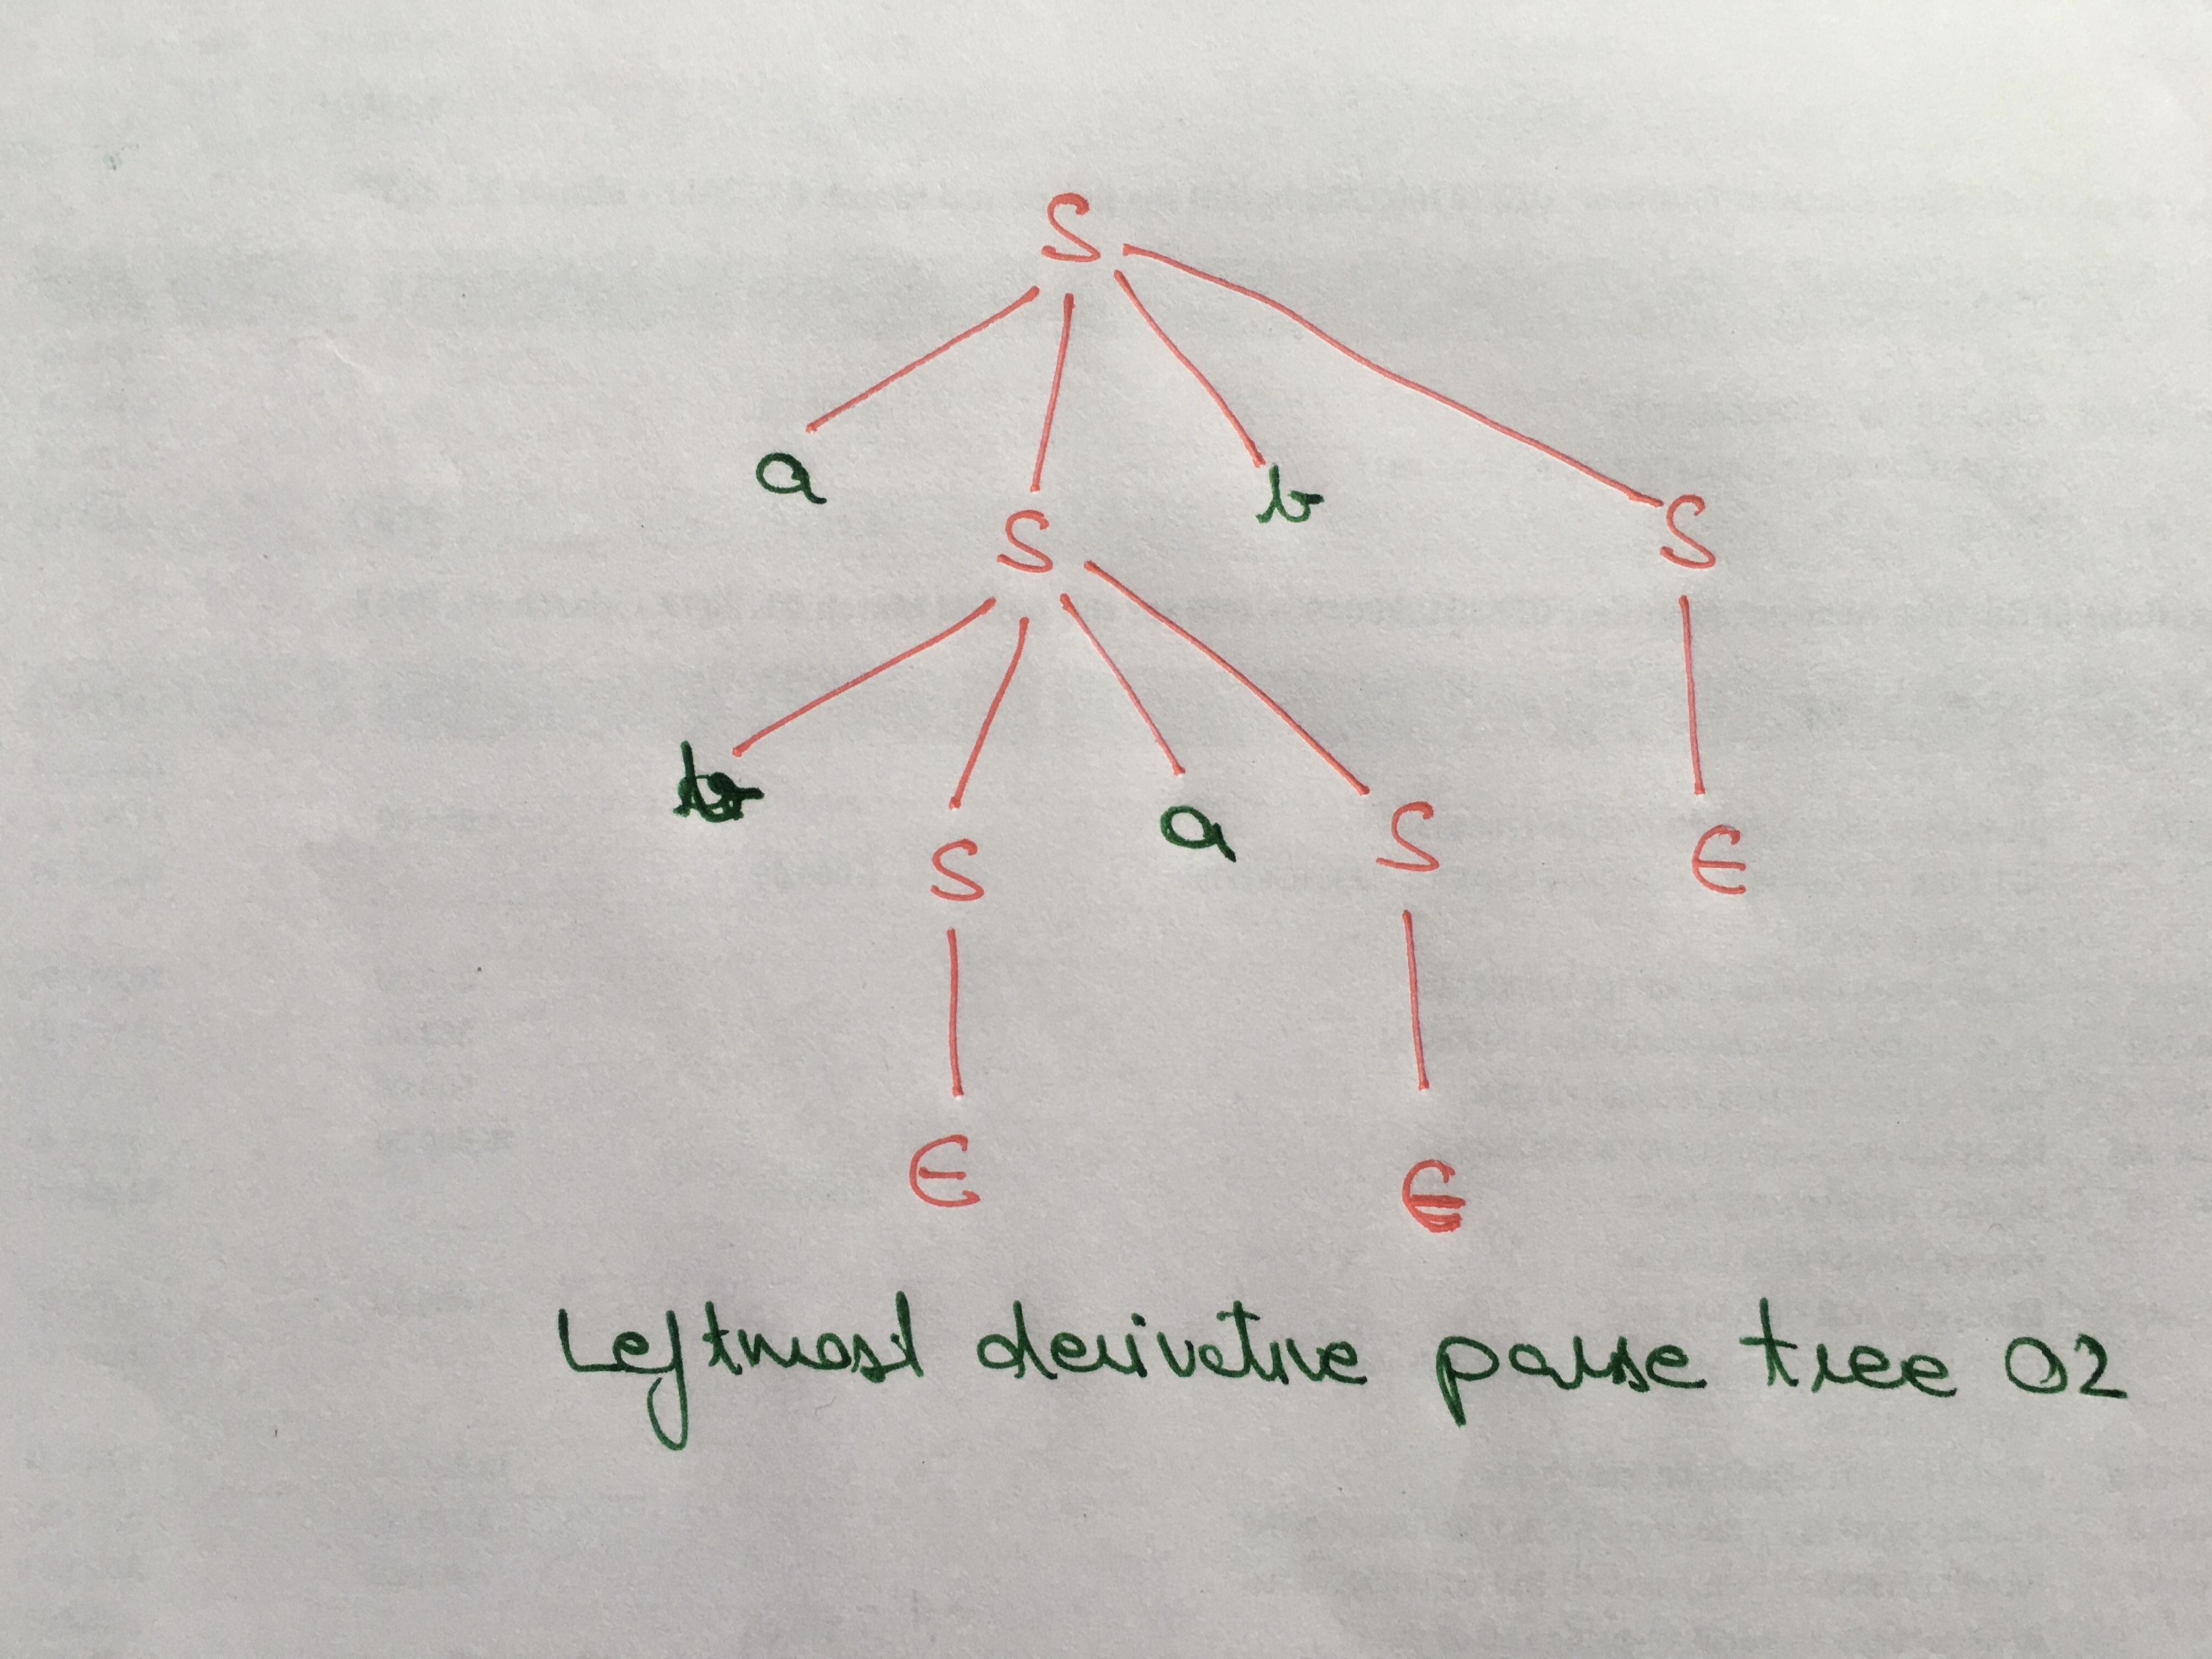 S
a S b S
b S a S ϵ
ϵ ϵ
Leftmost derivative parse tree 02